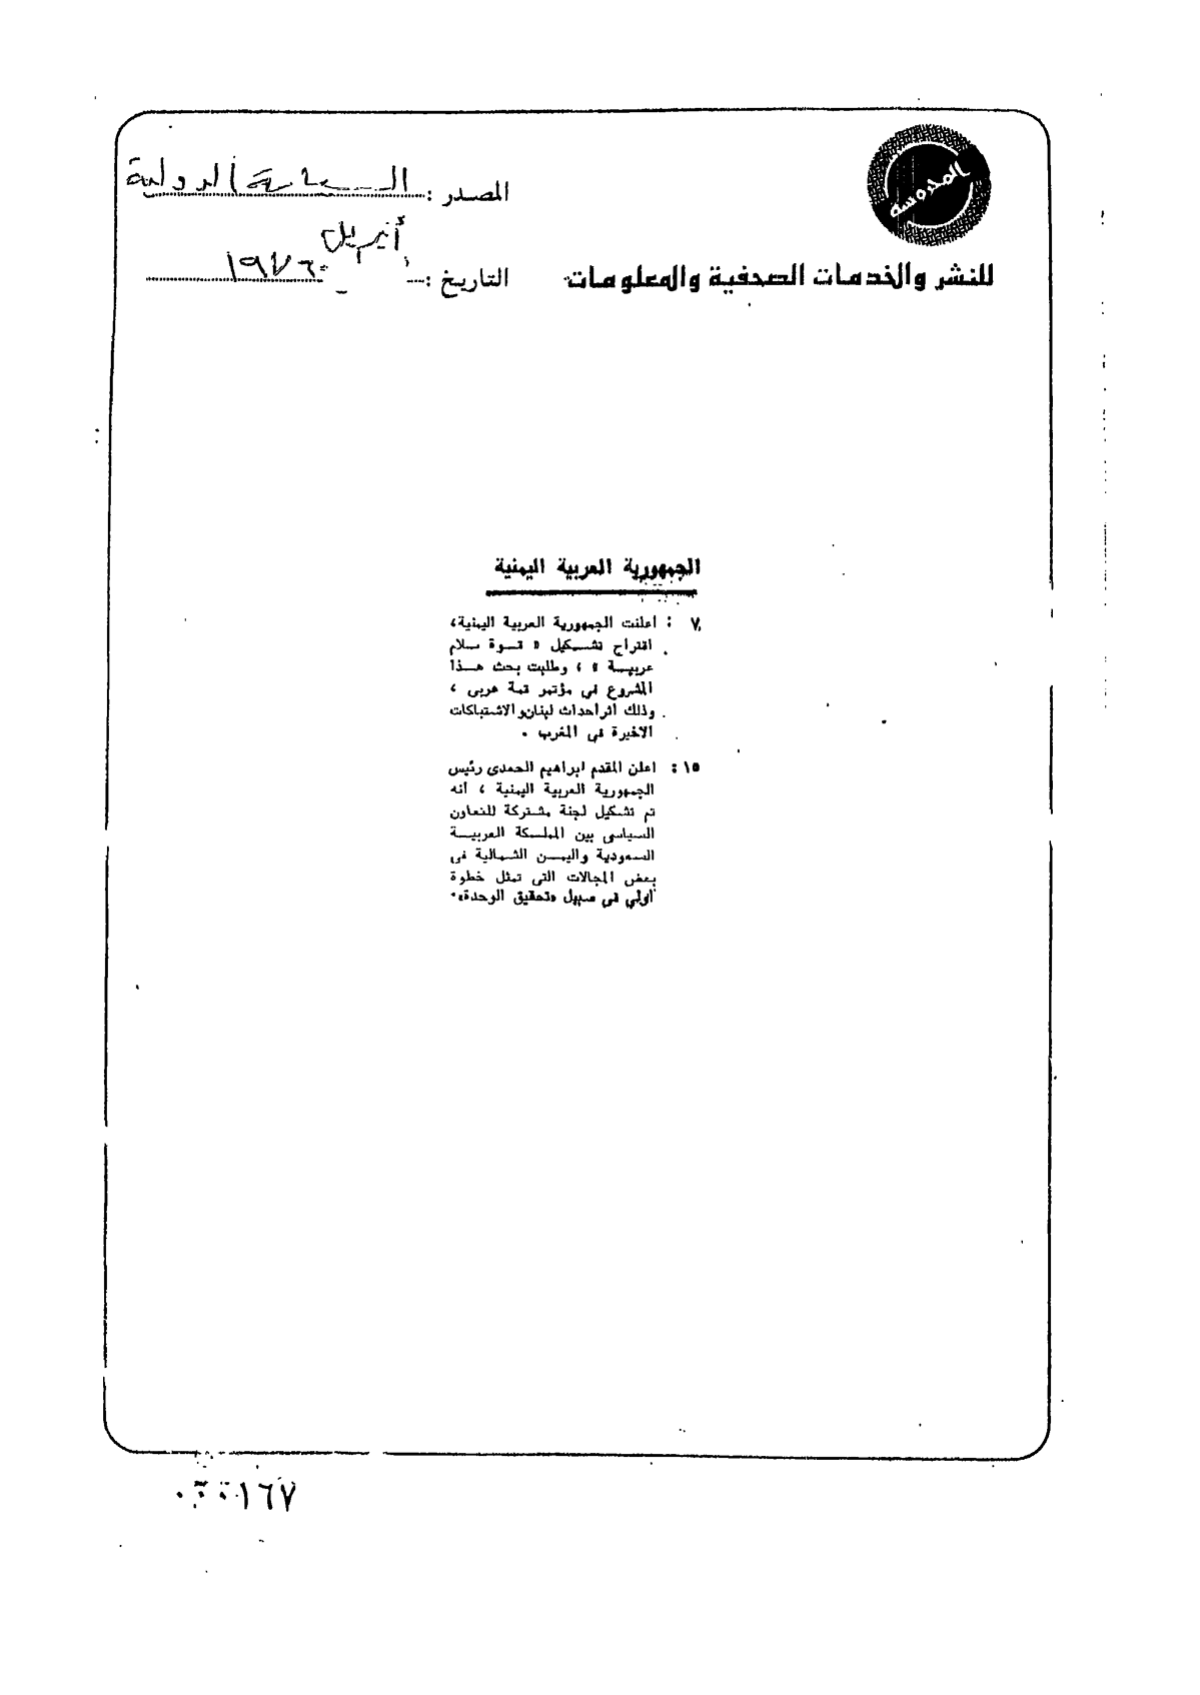 المدروسة
للنشر والخدمات الصحفية والمعلومات
المصدر : السياسة الدولية
التاريخ : أبريل ١٩٧٦
الجمهورية العربية اليمنية
٧ : اعلنت الجمهورية العربية اليمنية،
اقتراح تشكيل « قوة سلام
عربية » ، وطلبت بحث هذا
المشروع في مؤتمر قمة عربى ،
وذلك اثر احداث لبنان والاشتباكات
الاخيرة فى المغرب .
١٥ : اعلن المقدم ابراهيم الحمدى رئيس
الجمهورية العربية اليمنية ، انه
تم تشكيل لجنة مشتركة للتعاون
السياسى بين المملكة العربية
السعودية واليمن الشمالية فى
بعض المجالات التى تمثل خطوة
أولي في سبيل «تحقيق الوحدة».